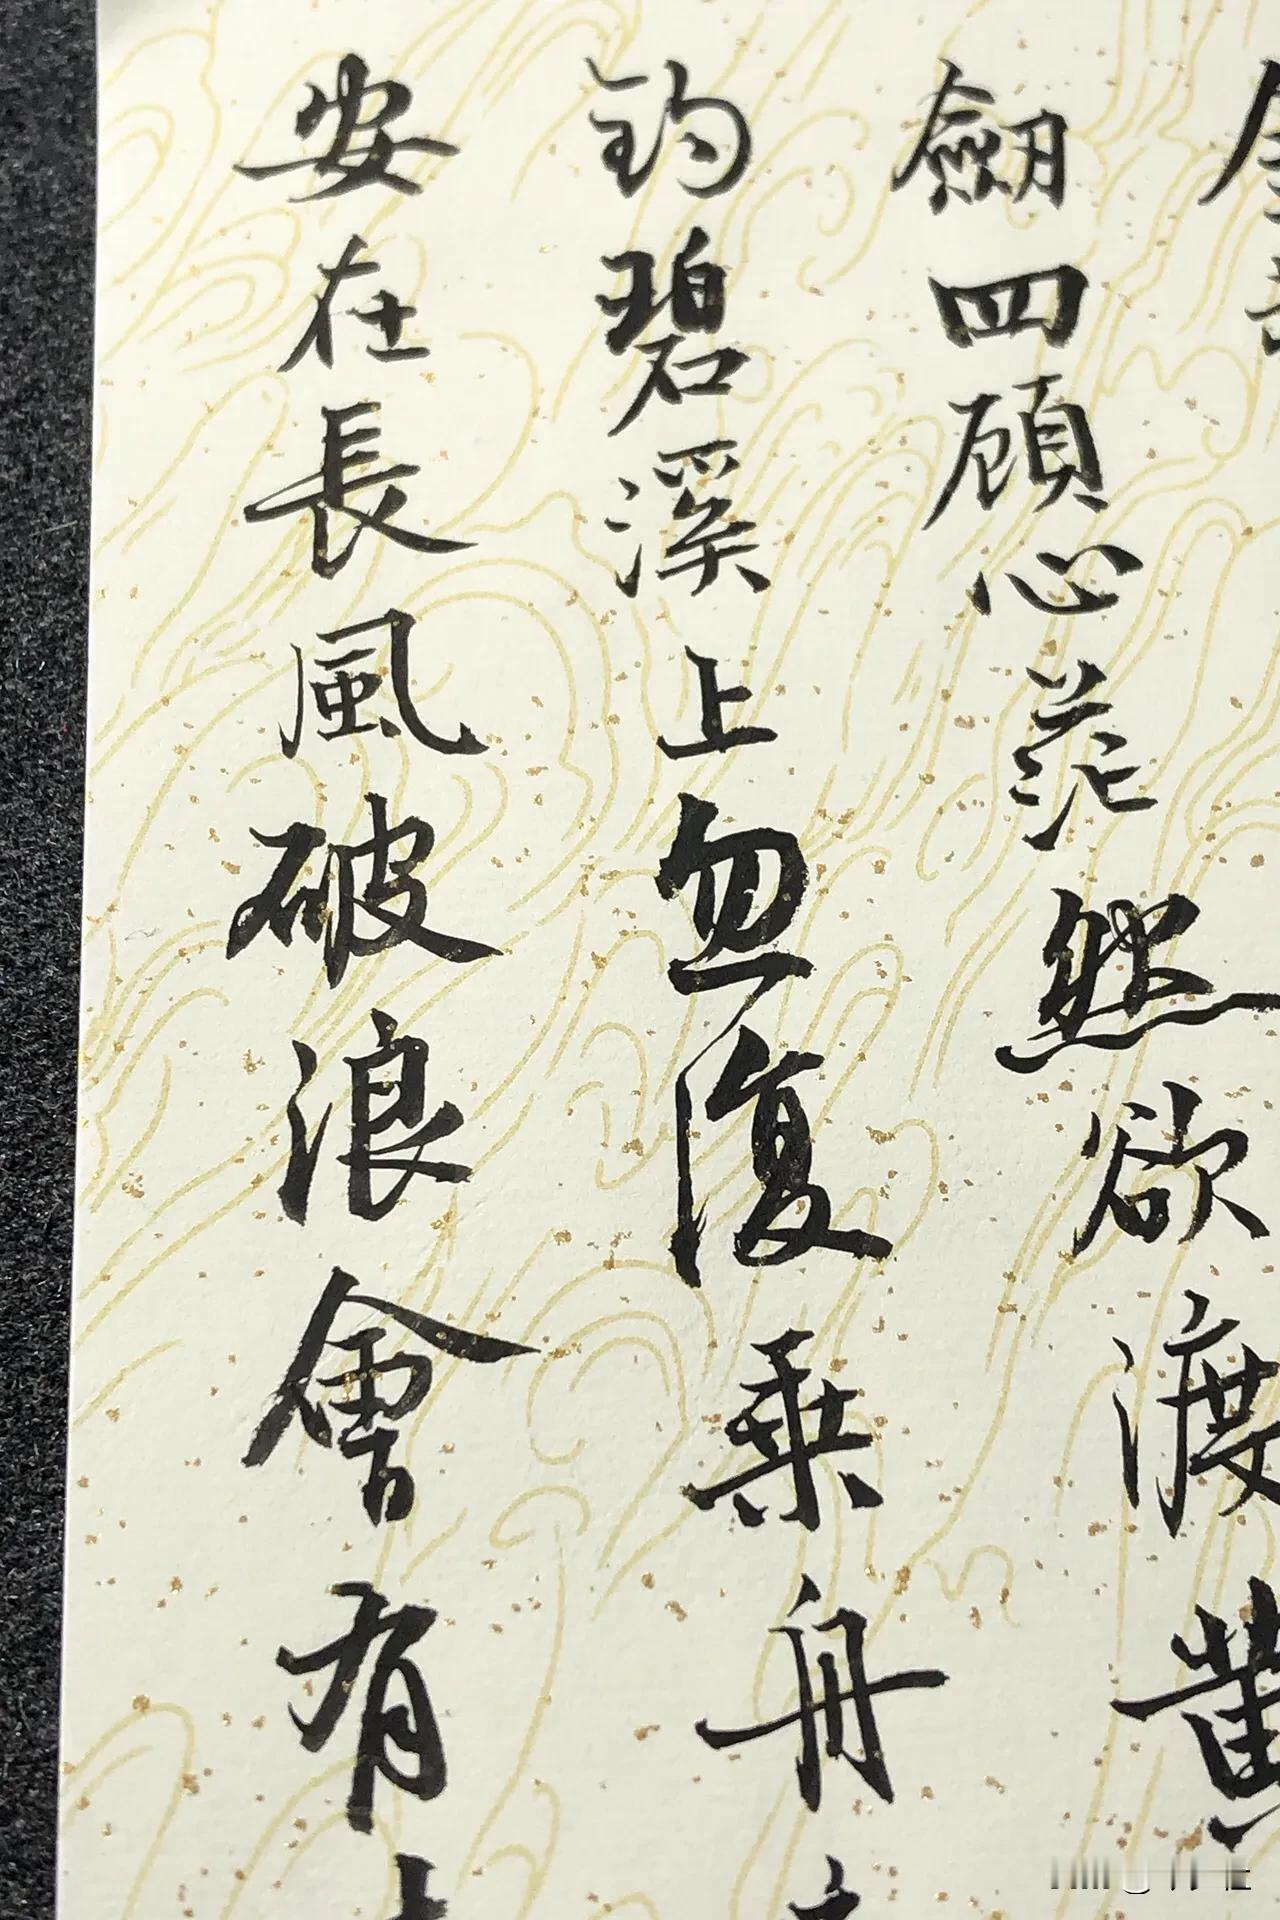 劒四顧心茫然欲渡黄
釣碧溪上忽復乘舟
安在長風破浪會有